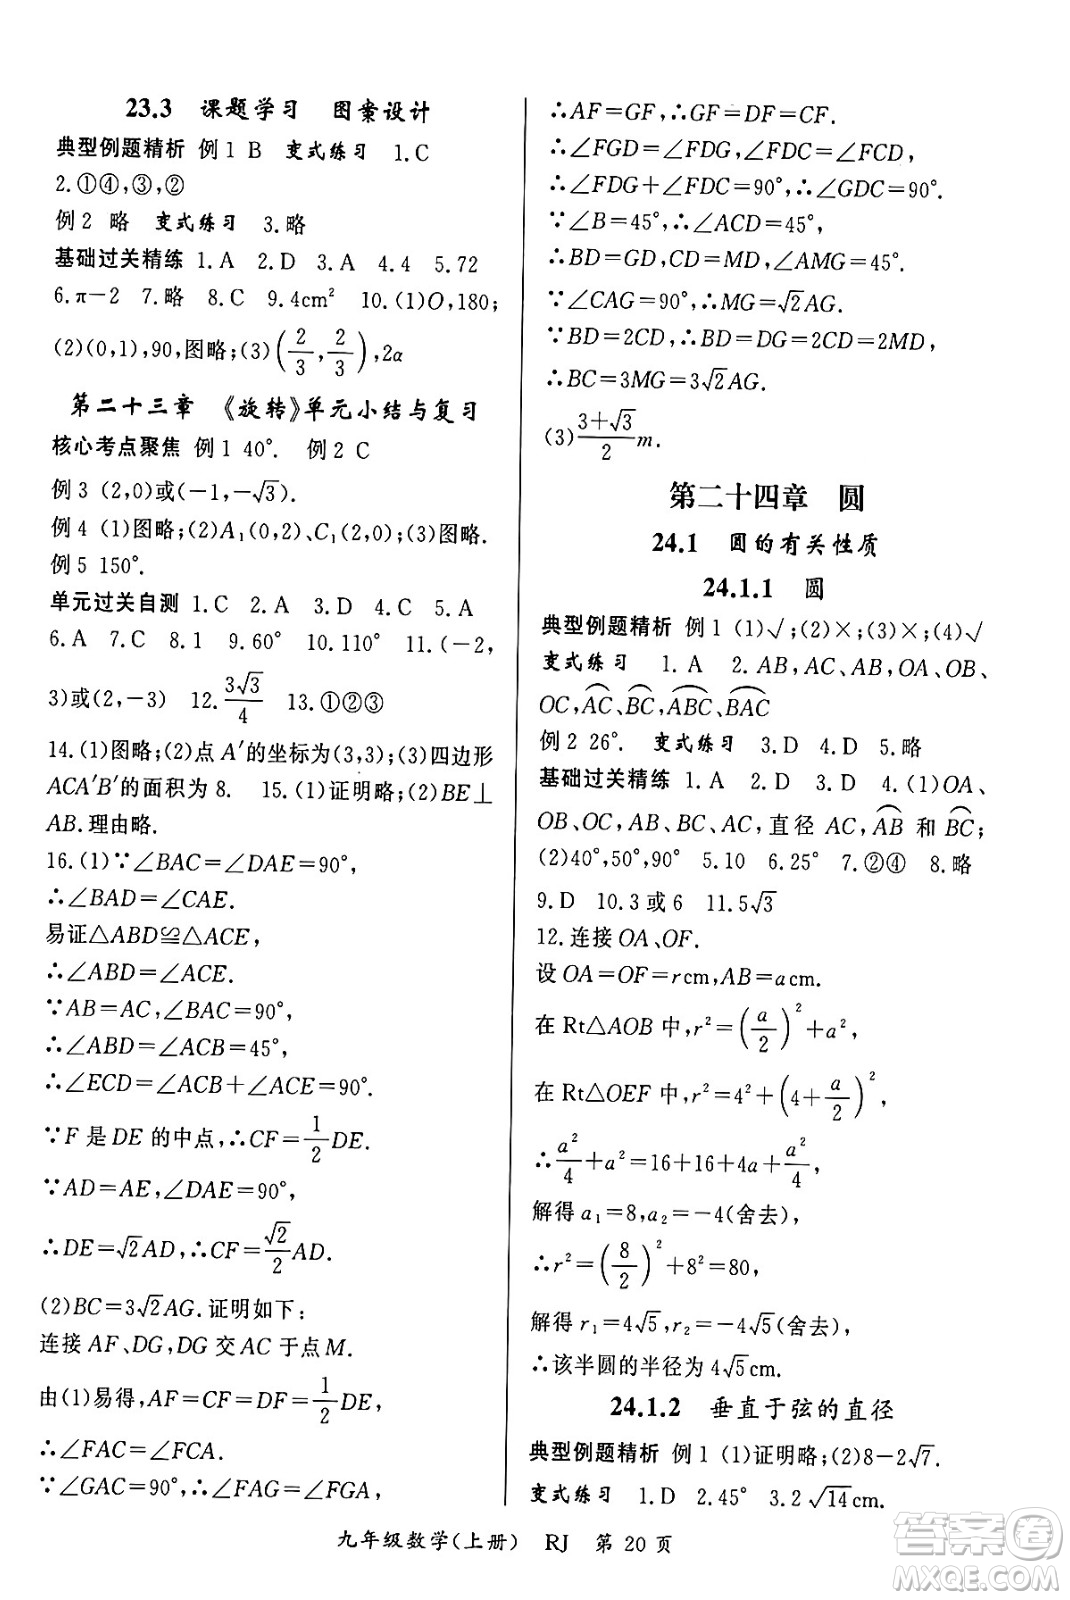 23.3 课题学习 图案设计
典型例题精析 例1 B 变式练习 1.C
2.①④,③,②
例2 略 变式练习 3.略
基础过关精练 1.A 2.D 3.A 4.4 5.72
6.π－2 7.略 8.C 9.4cm² 10.(1)O,180;
(2)(0,1),90,图略;(3)(2/3,2/3),2α
第二十三章 《旋转》单元小结与复习
核心考点聚焦 例1 40°. 例2 C
例3 (2,0)或(－1,－√3).
例4 (1)图略;(2)A₁(0,2)、C₁(2,0);(3)图略.
例5 150°.
单元过关自测 1.C 2.A 3.D 4.C 5.B
6.A 7.C 8.1 9.60° 10.110° 11.(－2,
3)或(2,－3) 12.3√3/4 13.①②③
14.(1)图略;(2)点A′的坐标为(3,3);(3)四边形
ACA′B′的面积为8. 15.(1)证明略;(2)BE⊥
AB.理由略.
16.(1)∵∠BAC＝∠DAE＝90°,
∴∠BAD＝∠CAE.
易证△ABD≌△ACE,
∴∠ABD＝∠ACE.
∵AB＝AC,∠BAC＝90°,
∴∠ABD＝∠ACB＝45°,
∴∠ECD＝∠ACB＋∠ACE＝90°.
∵F是DE的中点,∴CF＝1/2DE.
∵AD＝AE,∠DAE＝90°,
∴DE＝√2AD,∴CF＝√2/2AD.
(2)BC＝3√2AG.证明如下:
连接AF,DG,DG交AC于点M.
由(1)易得,AF＝CF＝DF＝1/2DE,
∴∠FAC＝∠FCA.
∵∠GAC＝90°,∴∠FAG＝∠FGA,
∴AF＝GF,∴GF＝DF＝CF.
∴∠FGD＝∠FDG,∠FDC＝∠FCD,
∴∠FDG＋∠FDC＝90°,∴∠GDC＝90°.
∵∠B＝45°,∴∠ACD＝45°,
∴BD＝GD,CD＝MD,∠AMG＝45°.
∵∠CAG＝90°,∴MG＝√2AG.
∵BD＝2CD,∴BD＝DG＝2CD＝2MD,
∴BC＝3MG＝3√2AG.
(3)3＋√3/2m.
第二十四章 圆
24.1 圆的有关性质
24.1.1 圆
典型例题精析 例1 (1)√;(2)×;(3)×;(4)√
变式练习 1.A 2.AB,AC,AB,OA、OB、
OC,AC、BC,ABC、BAC
例2 26°. 变式练习 3.D 4.D 5.略
基础过关精练 1.A 2.D 3.D 4.(1)OA、
OB、OC,AB、BC、AC,直径AC,AB和BC;
(2)40°,50°,90° 5.10 6.25° 7.②④ 8.略
9.D 10.3或6 11.5√3
12.连接OA、OF.
设OA＝OF＝rcm,AB＝acm.
在Rt△AOB中,r²＝(a/2)²＋a²,
在Rt△OEF中,r²＝4²＋(4＋a/2)²,
∴a²/4＋a²＝16＋16＋4a＋a²/4,
解得a₁＝8,a₂＝－4(舍去),
∴r²＝(8/2)²＋8²＝80,
解得r₁＝4√5,r₂＝－4√5(舍去),
∴该半圆的半径为4√5cm.
24.1.2 垂直于弦的直径
典型例题精析 例1 (1)证明略;(2)8－2√7.
变式练习 1.D 2.45° 3.2√14cm.
九年级数学(上册) RJ 第20页
作业精灵
MXQE.COM